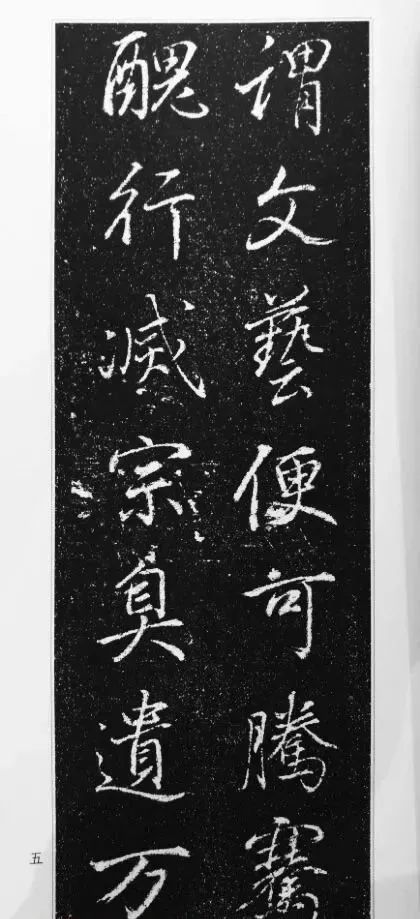 謂文藝便可騰騫
醜行滅宗臭遺万
五